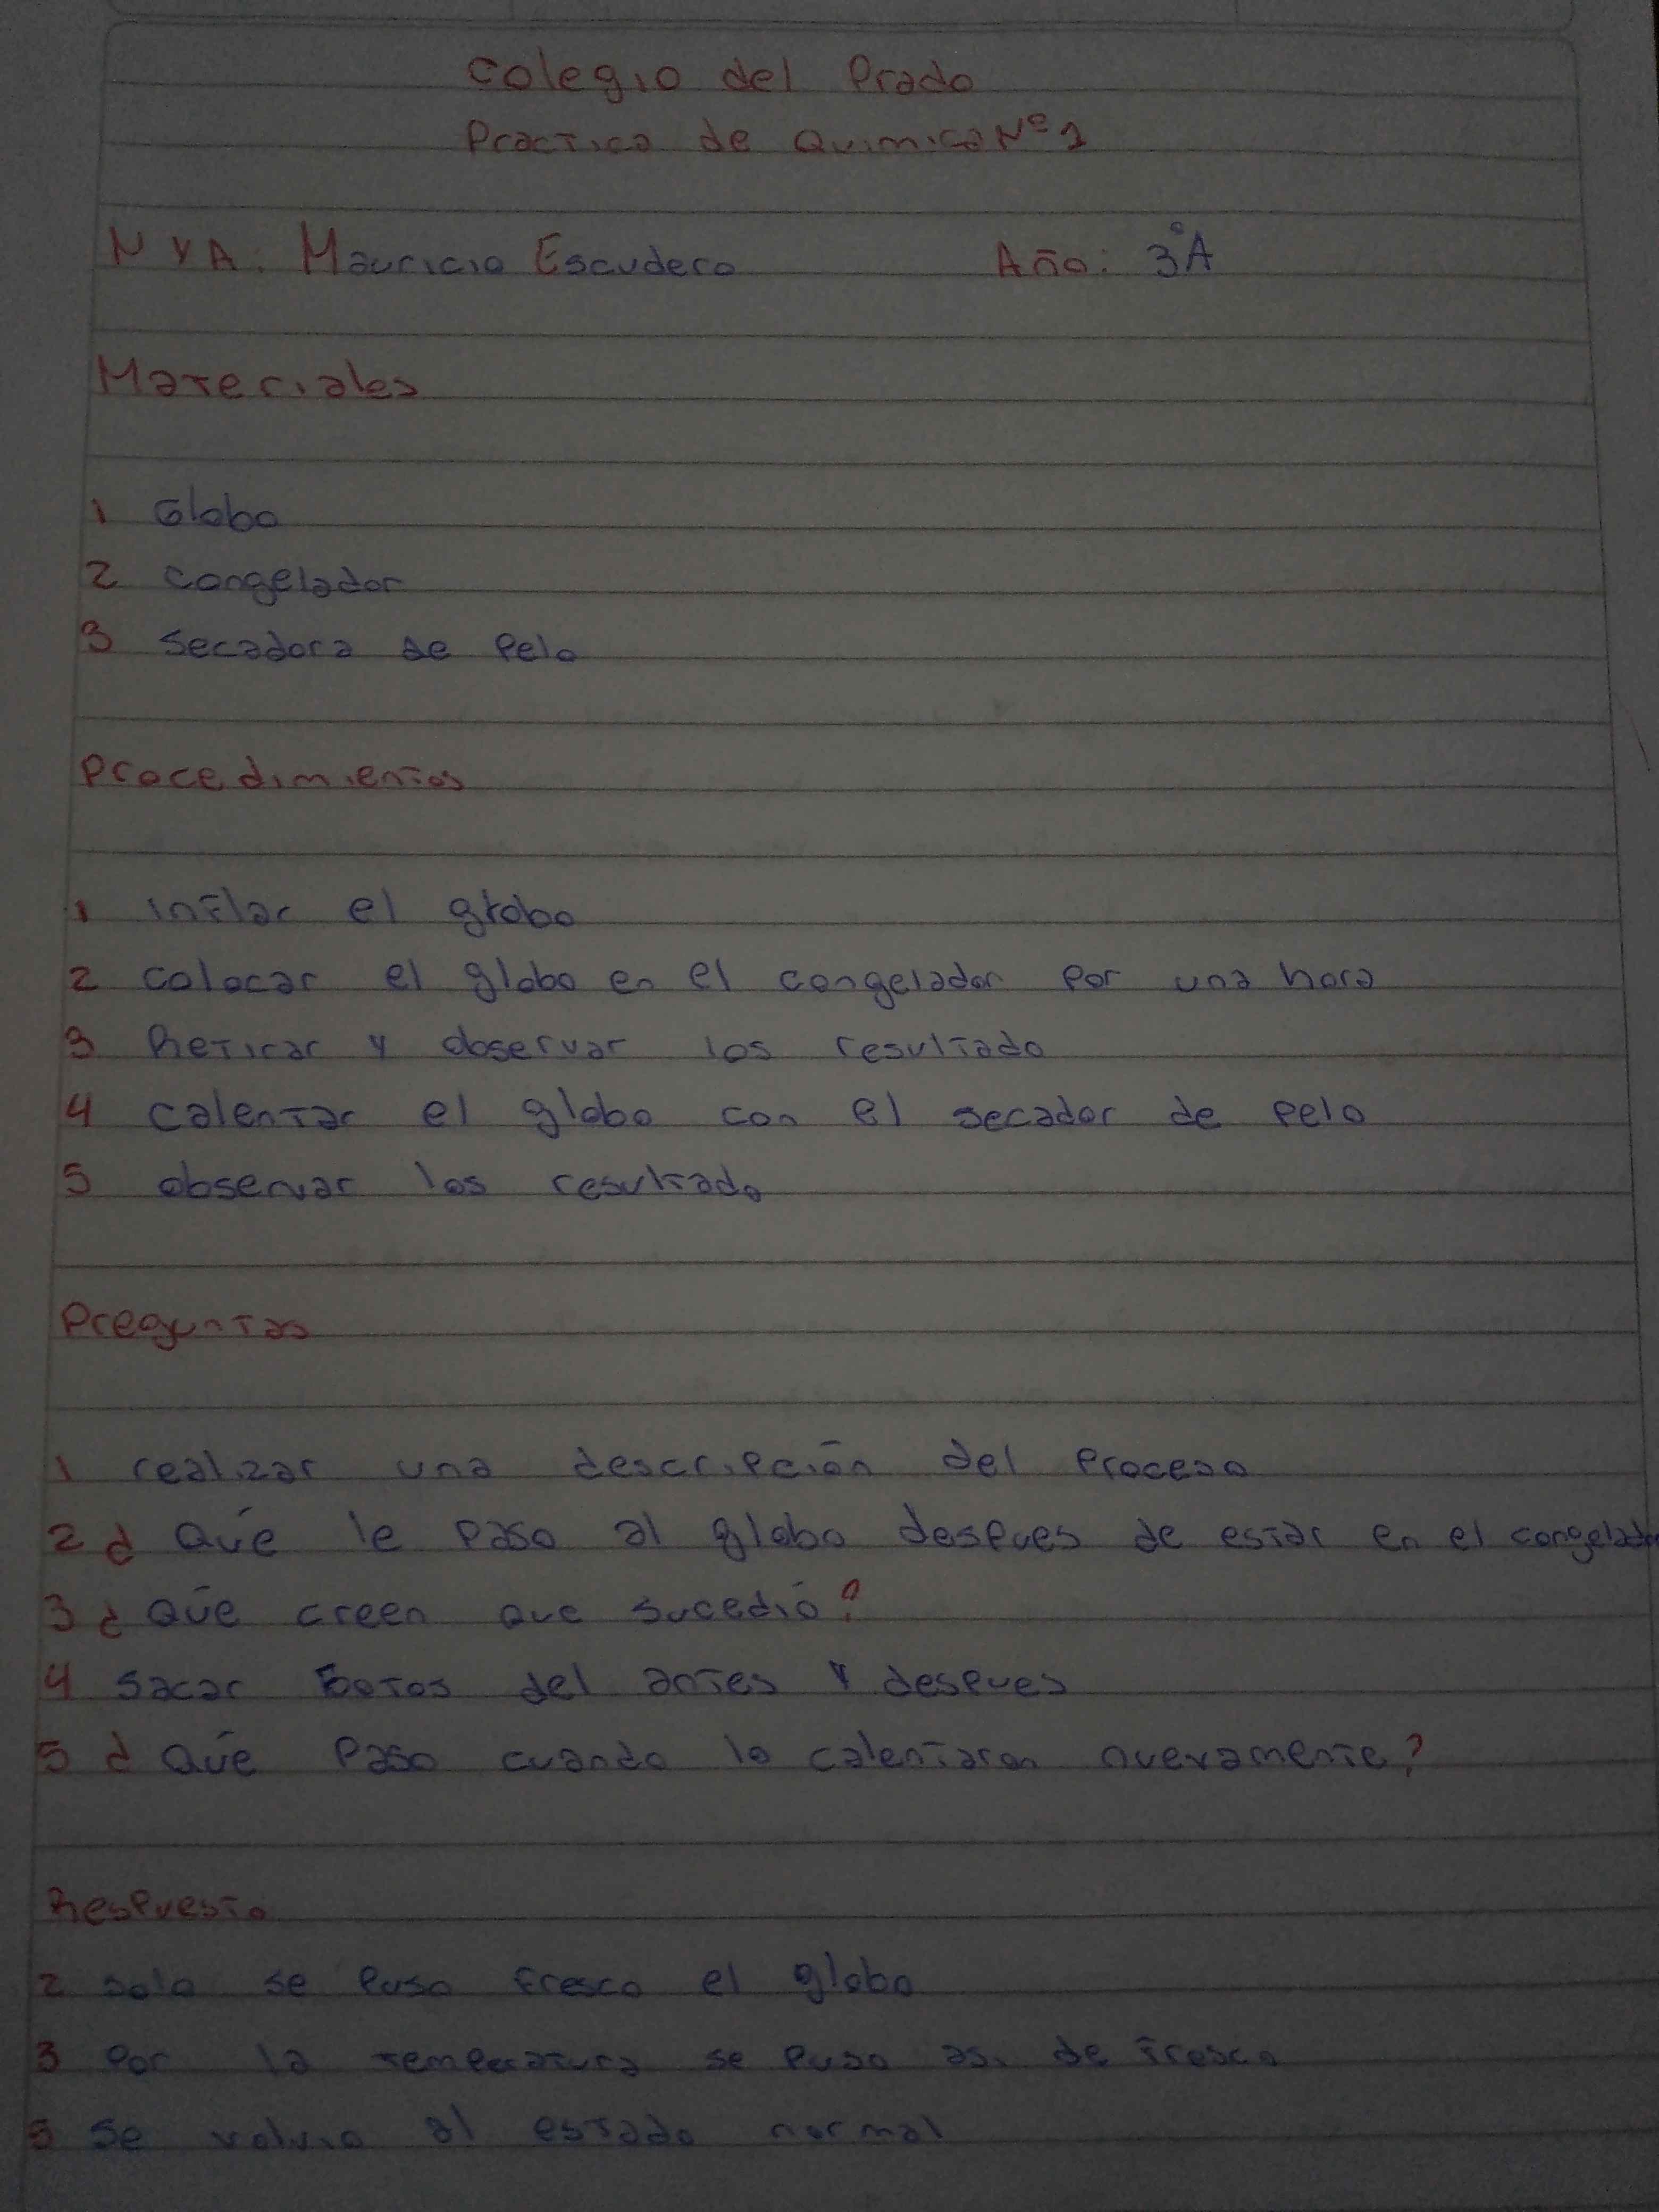 Colegio del Prado
Practica de Quimica Nº 1
N Y A: Mauricio Escudero Año: 3ºA
Materiales
1 Globo
2 congelador
3 secadora de pelo
Procedimientos
1 inflar el globo
2 colocar el globo en el congelador por una hora
3 Retirar y observar los resultado
4 calentar el globo con el secador de pelo
5 observar los resultado
Preguntas
1 realizar una descripción del proceso
2 ¿Qué le paso al globo despues de estar en el congelador
3 ¿Qué creen que sucedió?
4 sacar fotos del antes y despues
5 ¿Qué paso cuando lo calentaron nuevamente?
Respuesta
2 solo se puso fresco el globo
3 por la temperatura se puso asi de fresco
5 se volvio al estado normal